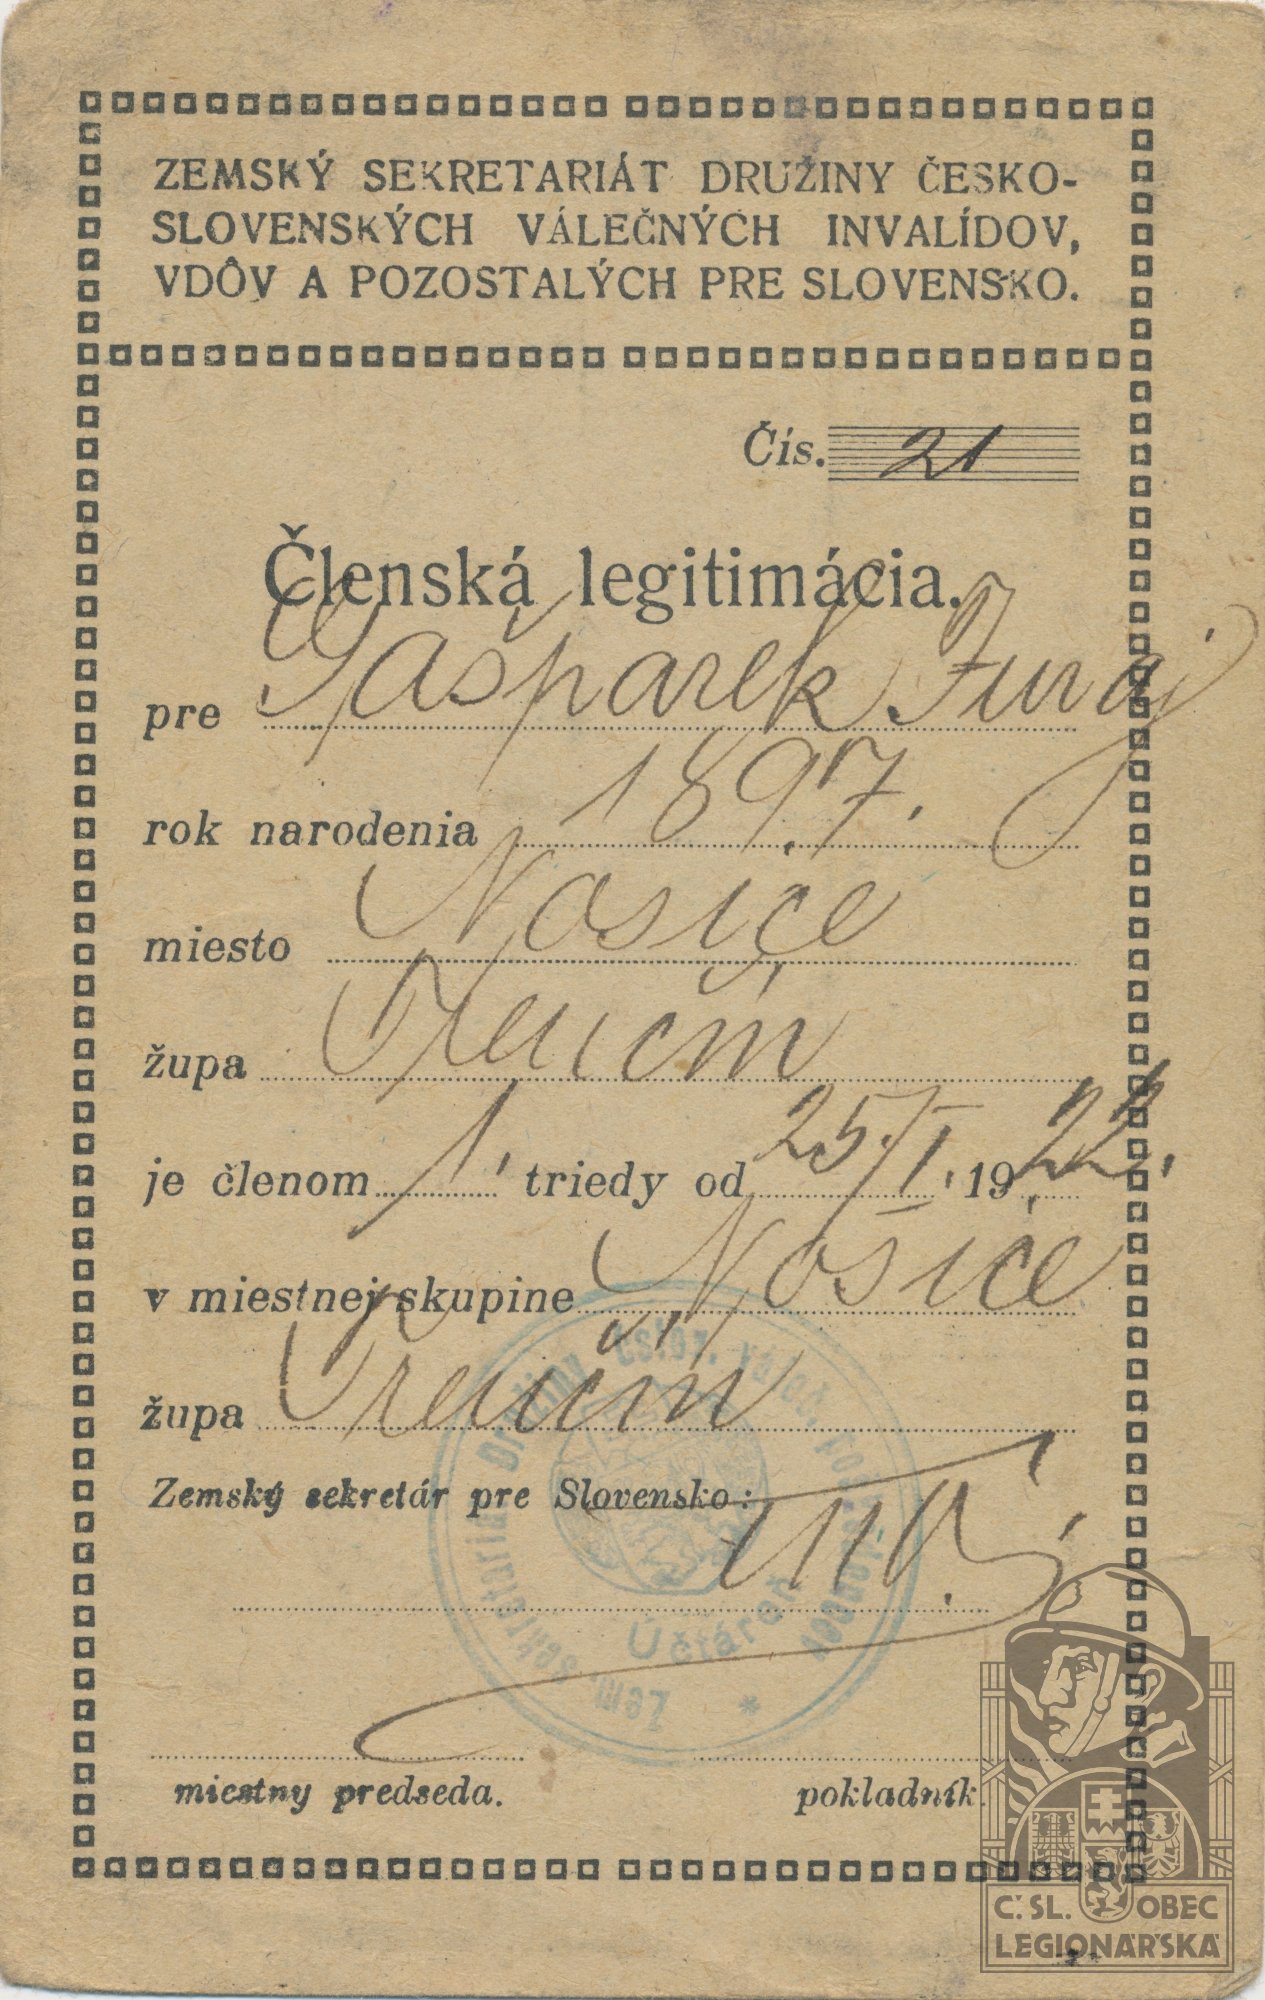 ZEMSKÝ SEKRETARIÁT DRUŽINY ČESKO-
SLOVENSKÝCH VÁLEČNÝCH INVALÍDOV,
VDÔV A POZOSTALÝCH PRE SLOVENSKO.
Čís. 21
Členská legitimácia.
pre Gašparek Juraj
rok narodenia 1897.
miesto Nosice
župa Trenčín
je členom 1. triedy od 25/I. 1922.
v miestnej skupine Nosice
župa Trenčín
Zemský sekretár pre Slovensko:
Účtáreň
miestny predseda.
pokladník.
Č. SL. OBEC
LEGIONÁŘSKÁ